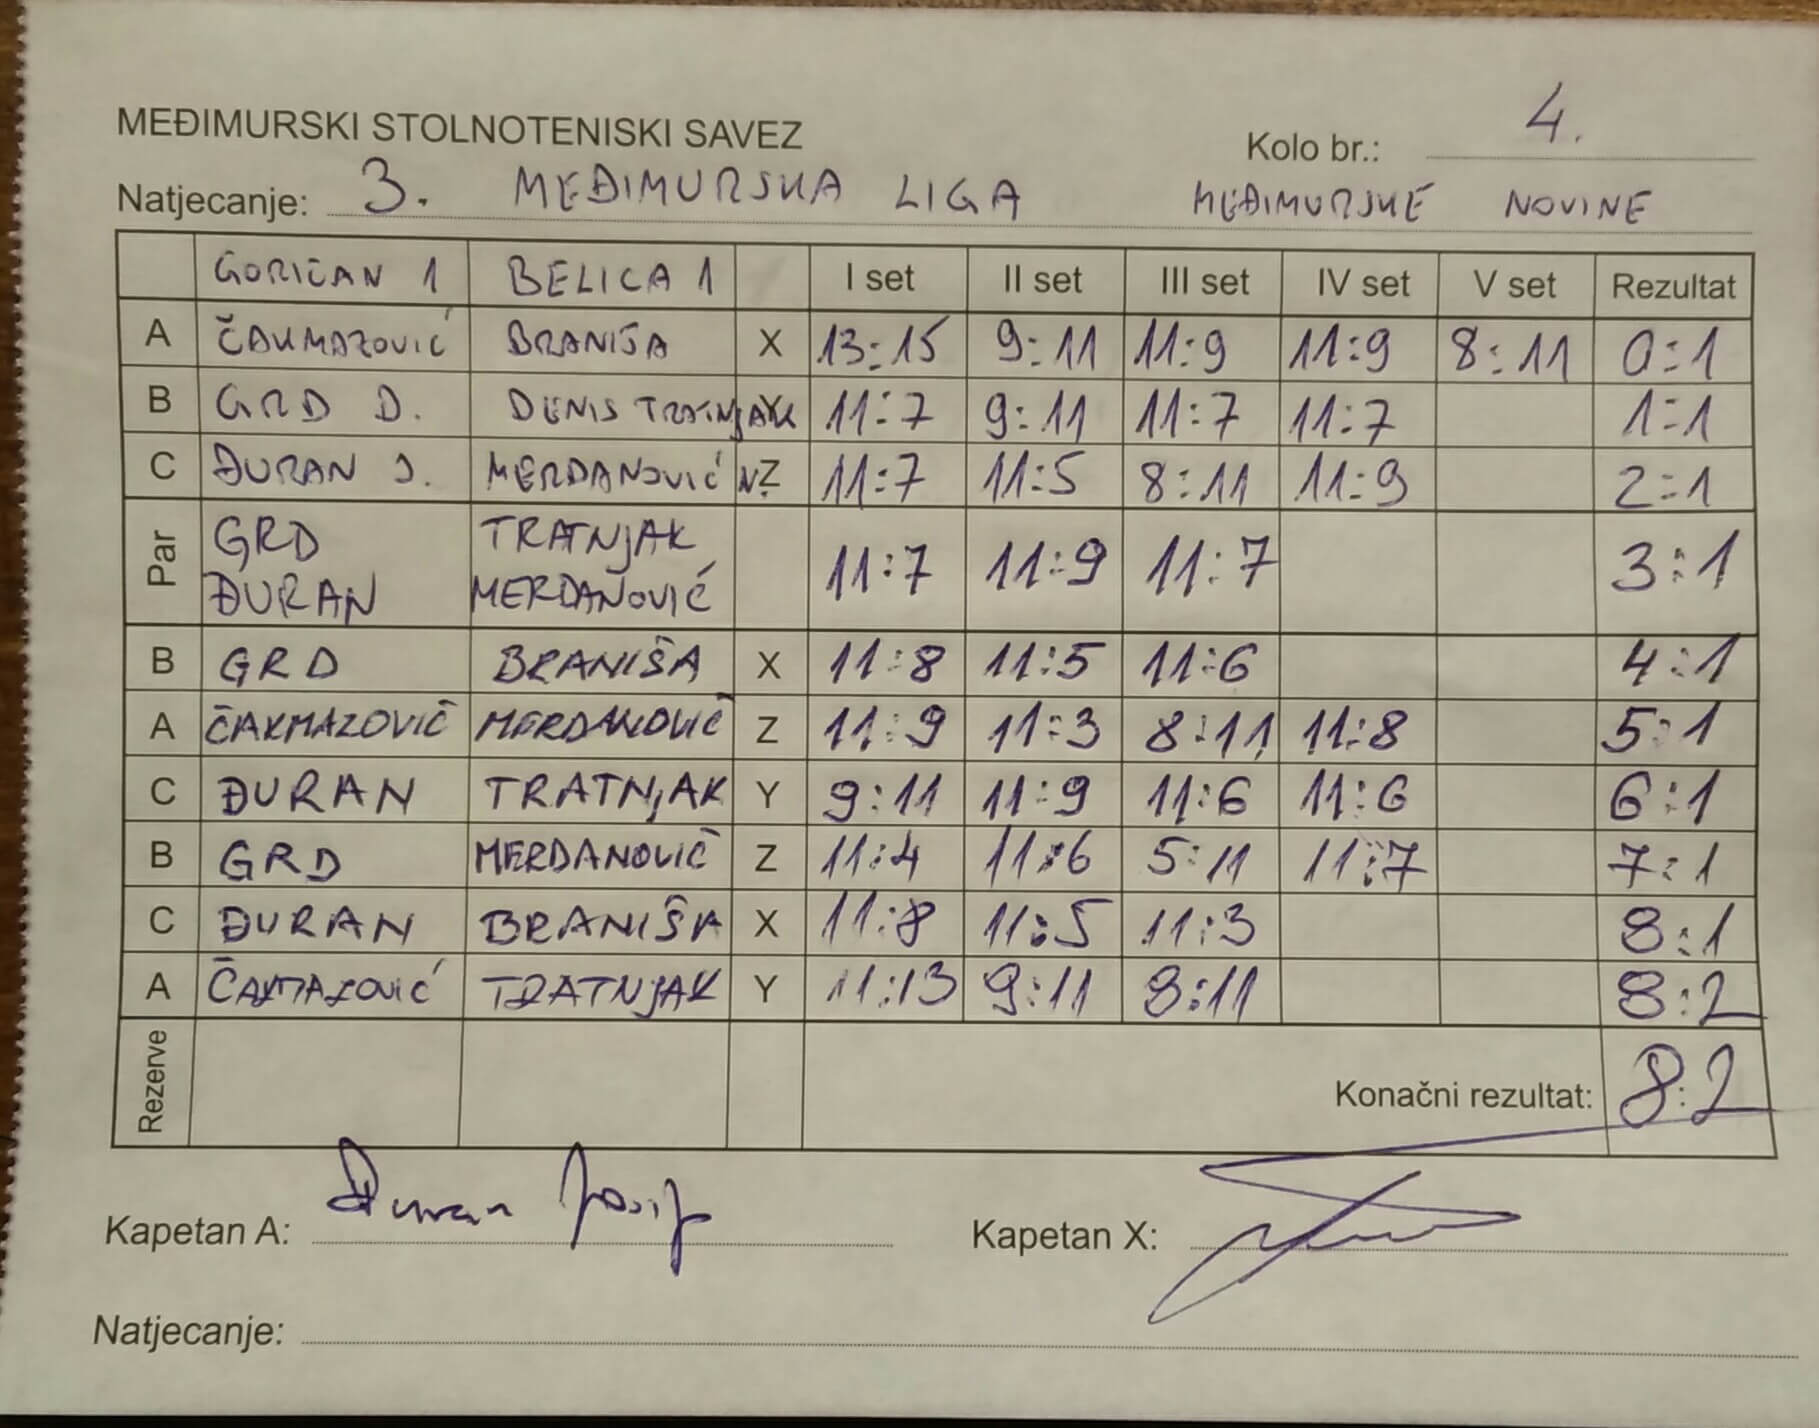 MEĐIMURSKI STOLNOTENISKI SAVEZ
Kolo br.: 4.
Natjecanje: 3. MEĐIMURSKA LIGA MEĐIMURSKE NOVINE
GORIČAN 1 BELICA 1 I set II set III set IV set V set Rezultat
A ČAKMAZOVIĆ BRANIŠA X 13:15 9:11 11:9 11:9 8:11 0:1
B GRD D. DENIS TRATNJAK Y 11:7 9:11 11:7 11:7 1:1
C ĐURAN J. MERDANOVIĆ N. Z 11:7 11:5 8:11 11:9 2:1
Par GRD TRATNJAK 11:7 11:9 11:7 3:1
ĐURAN MERDANOVIĆ
B GRD BRANIŠA X 11:8 11:5 11:6 4:1
A ČAKMAZOVIČ MERDANOVIČ Z 11:9 11:3 8:11 11:8 5:1
C ĐURAN TRATNJAK Y 9:11 11:9 11:6 11:6 6:1
B GRD MERDANOVIČ Z 11:4 11:6 5:11 11:7 7:1
C ĐURAN BRANIŠA X 11:8 11:5 11:3 8:1
A ČAKMAZOVIĆ TRATNJAK Y 11:13 9:11 8:11 8:2
Rezerve Konačni rezultat: 8:2
Kapetan A: Đuran Josip Kapetan X:
Natjecanje: